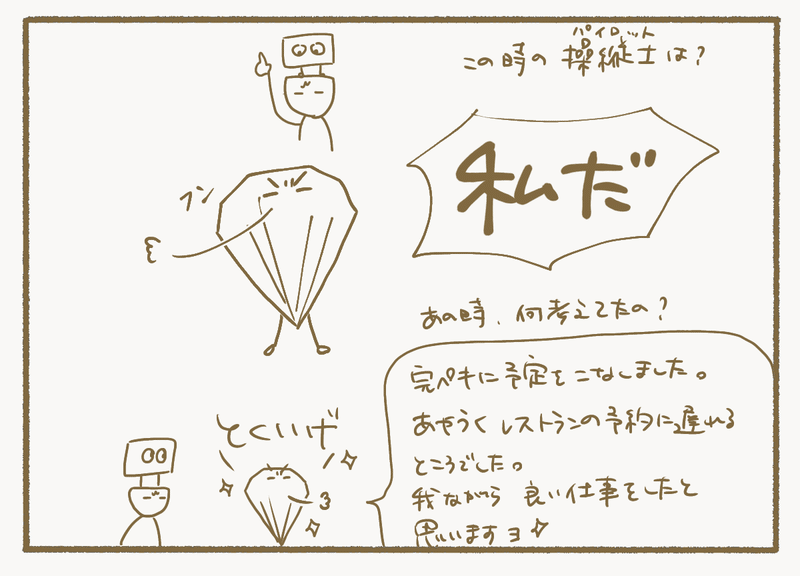 パイロット
この時の操縦士は?
私だ
フン
あの時、何考えてたの?
完ペキに予定をこなしました。
あやうくレストランの予約に遅れる
ところでした。
我ながら 良い仕事をしたと
思いますョ
とくいげ